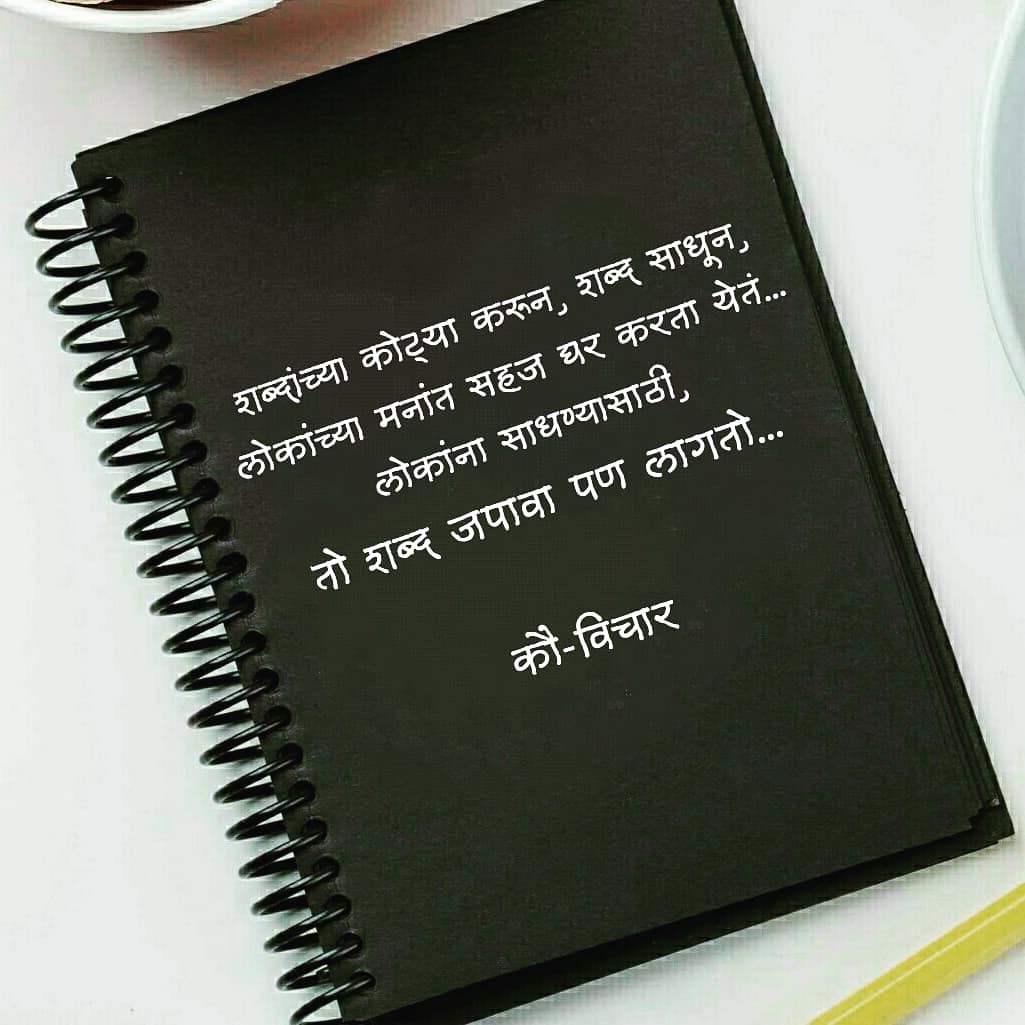 शब्दांच्या कोट्या करून, शब्द साधून,
लोकांच्या मनांत सहज घर करता येतं...
लोकांना साधण्यासाठी,
तो शब्द जपावा पण लागतो...
कौ-विचार